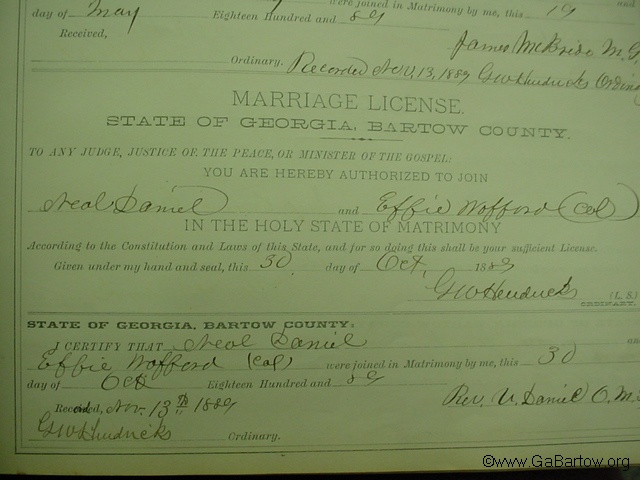 were joined in Matrimony by me, this 19 and
day of May Eighteen Hundred and 89
Received, James McBride M. G.
Ordinary. Recorded Nov. 13, 1889 GW Hendricks Ordina
MARRIAGE LICENSE.
STATE OF GEORGIA, BARTOW COUNTY.
TO ANY JUDGE, JUSTICE OF THE PEACE, OR MINISTER OF THE GOSPEL:
YOU ARE HEREBY AUTHORIZED TO JOIN
Neal Daniel and Effie Wofford (col)
IN THE HOLY STATE OF MATRIMONY
According to the Constitution and Laws of this State, and for so doing this shall be your sufficient License.
Given under my hand and seal, this 30 day of Oct, 1889
GW Hendricks (L. S.)
ORDINARY.
STATE OF GEORGIA, BARTOW COUNTY:
I CERTIFY THAT Neal Daniel an
Effie Wofford (col) were joined in Matrimony by me, this 30
day of Oct Eighteen Hundred and 89
Recorded, Nov. 13th 1889 Rev. U. Daniel O. M.
GW Hendricks Ordinary.
©www.GaBartow.org